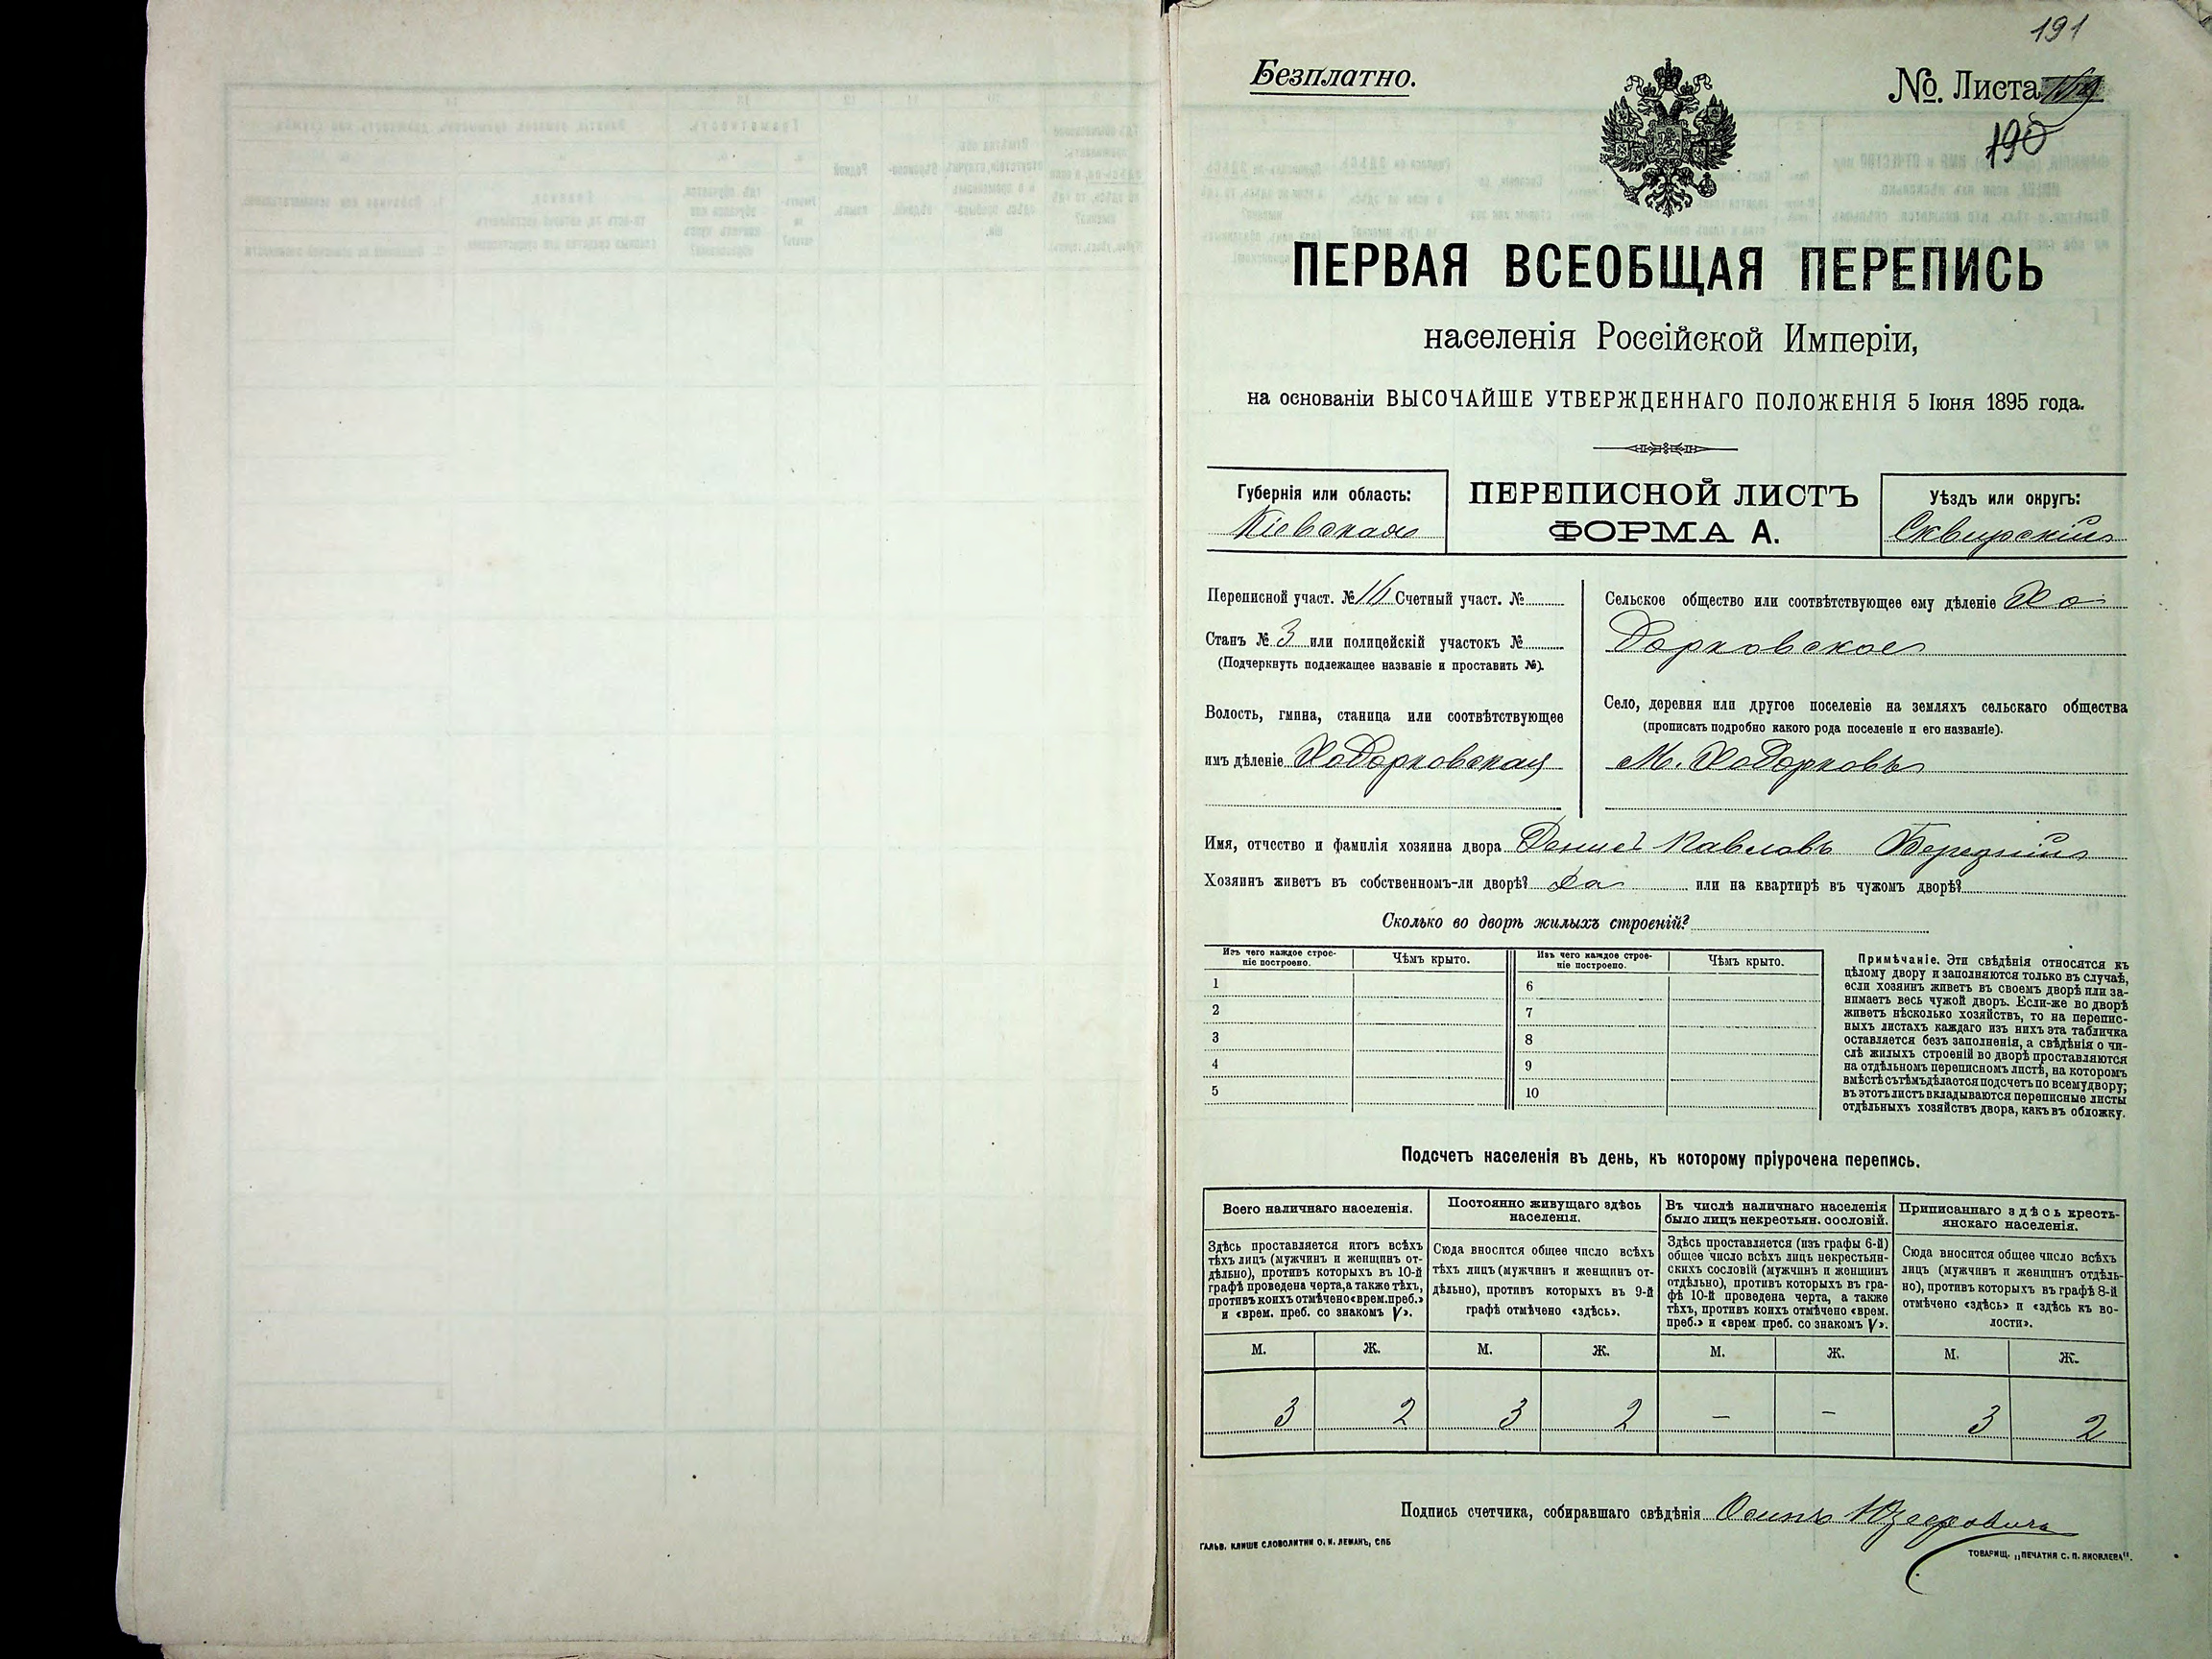 191
Безплатно.
№. Листа
190
ПЕРВАЯ ВСЕОБЩАЯ ПЕРЕПИСЬ
населенія Россійской Имперіи,
на основаніи ВЫСОЧАЙШЕ УТВЕРЖДЕННАГО ПОЛОЖЕНІЯ 5 Іюня 1895 года.
Губернія или область:
Кіевская
ПЕРЕПИСНОЙ ЛИСТЪ
ФОРМА А.
Уѣздъ или округъ:
Сквирскій
Переписной участ. № 14 Счетный участ. №
Станъ № 3 или полицейскій участокъ №
(Подчеркнуть подлежащее названіе и проставить №).
Волость, гмина, станица или соотвѣтствующее
имъ дѣленіе Ходорковская
Сельское общество или соотвѣтствующее ему дѣленіе Хо
дорковское
Село, деревня или другое поселеніе на земляхъ сельскаго общества
(прописать подробно какого рода поселеніе и его названіе).
М. Ходорковъ
Имя, отчество и фамилія хозяина двора Денис Павловъ Березній
Хозяинъ живетъ въ собственномъ-ли дворѣ? да или на квартирѣ въ чужомъ дворѣ?
Сколько во дворѣ жилыхъ строеній?
Изъ чего каждое строе-
ніе построено.
Чѣмъ крыто.
Изъ чего каждое строе-
ніе построено.
Чѣмъ крыто.
1
6
2
7
3
8
4
9
5
10
Примѣчаніе. Эти свѣдѣнія относятся къ
цѣлому двору и заполняются только въ случаѣ,
если хозяинъ живетъ въ своемъ дворѣ или за-
нимаетъ весь чужой дворъ. Если-же во дворѣ
живетъ нѣсколько хозяйствъ, то на перепис-
ныхъ листахъ каждаго изъ нихъ эта табличка
оставляется безъ заполненія, а свѣдѣнія о чи-
слѣ жилыхъ строеній во дворѣ проставляются
на отдѣльномъ переписномъ листѣ, на которомъ
вмѣстѣ съ тѣмъ дѣлается подсчетъ по всему двору;
въ этотъ листъ вкладываются переписные листы
отдѣльныхъ хозяйствъ двора, какъ въ обложку.
Подсчетъ населенія въ день, къ которому пріурочена перепись.
Всего наличнаго населенія.
Здѣсь проставляется итогъ всѣхъ
тѣхъ лицъ (мужчинъ и женщинъ от-
дѣльно), противъ которыхъ въ 10-й
графѣ проведена черта, а также тѣхъ,
противъ коихъ отмѣчено «врем. преб.»
и «врем. преб. со знакомъ V».
Постоянно живущаго здѣсь
населенія.
Сюда вносится общее число всѣхъ
тѣхъ лицъ (мужчинъ и женщинъ от-
дѣльно), противъ которыхъ въ 9-й
графѣ отмѣчено «здѣсь».
Въ числѣ наличнаго населенія
было лицъ некрестьян. сословій.
Здѣсь проставляется (изъ графы 6-й)
общее число всѣхъ лицъ некрестьян-
скихъ сословій (мужчинъ и женщинъ
отдѣльно), противъ которыхъ въ гра-
фѣ 10-й проведена черта, а также
тѣхъ, противъ коихъ отмѣчено «врем.
преб.» и «врем. преб. со знакомъ V».
Приписаннаго здѣсь кресть-
янскаго населенія.
Сюда вносится общее число всѣхъ
лицъ (мужчинъ и женщинъ отдѣль-
но), противъ которыхъ въ графѣ 8-й
отмѣчено «здѣсь» и «здѣсь къ во-
лости».
М. Ж. М. Ж. М. Ж. М. Ж.
3 2 3 2 – – 3 2
Подпись счетчика, собиравшаго свѣдѣнія Осипъ
ГАЛЬВ. КЛИШЕ СЛОВОЛИТНИ О. И. ЛЕМАНЪ, СПБ
ТОВАРИЩ. „ПЕЧАТНЯ С. П. ЯКОВЛЕВА“.